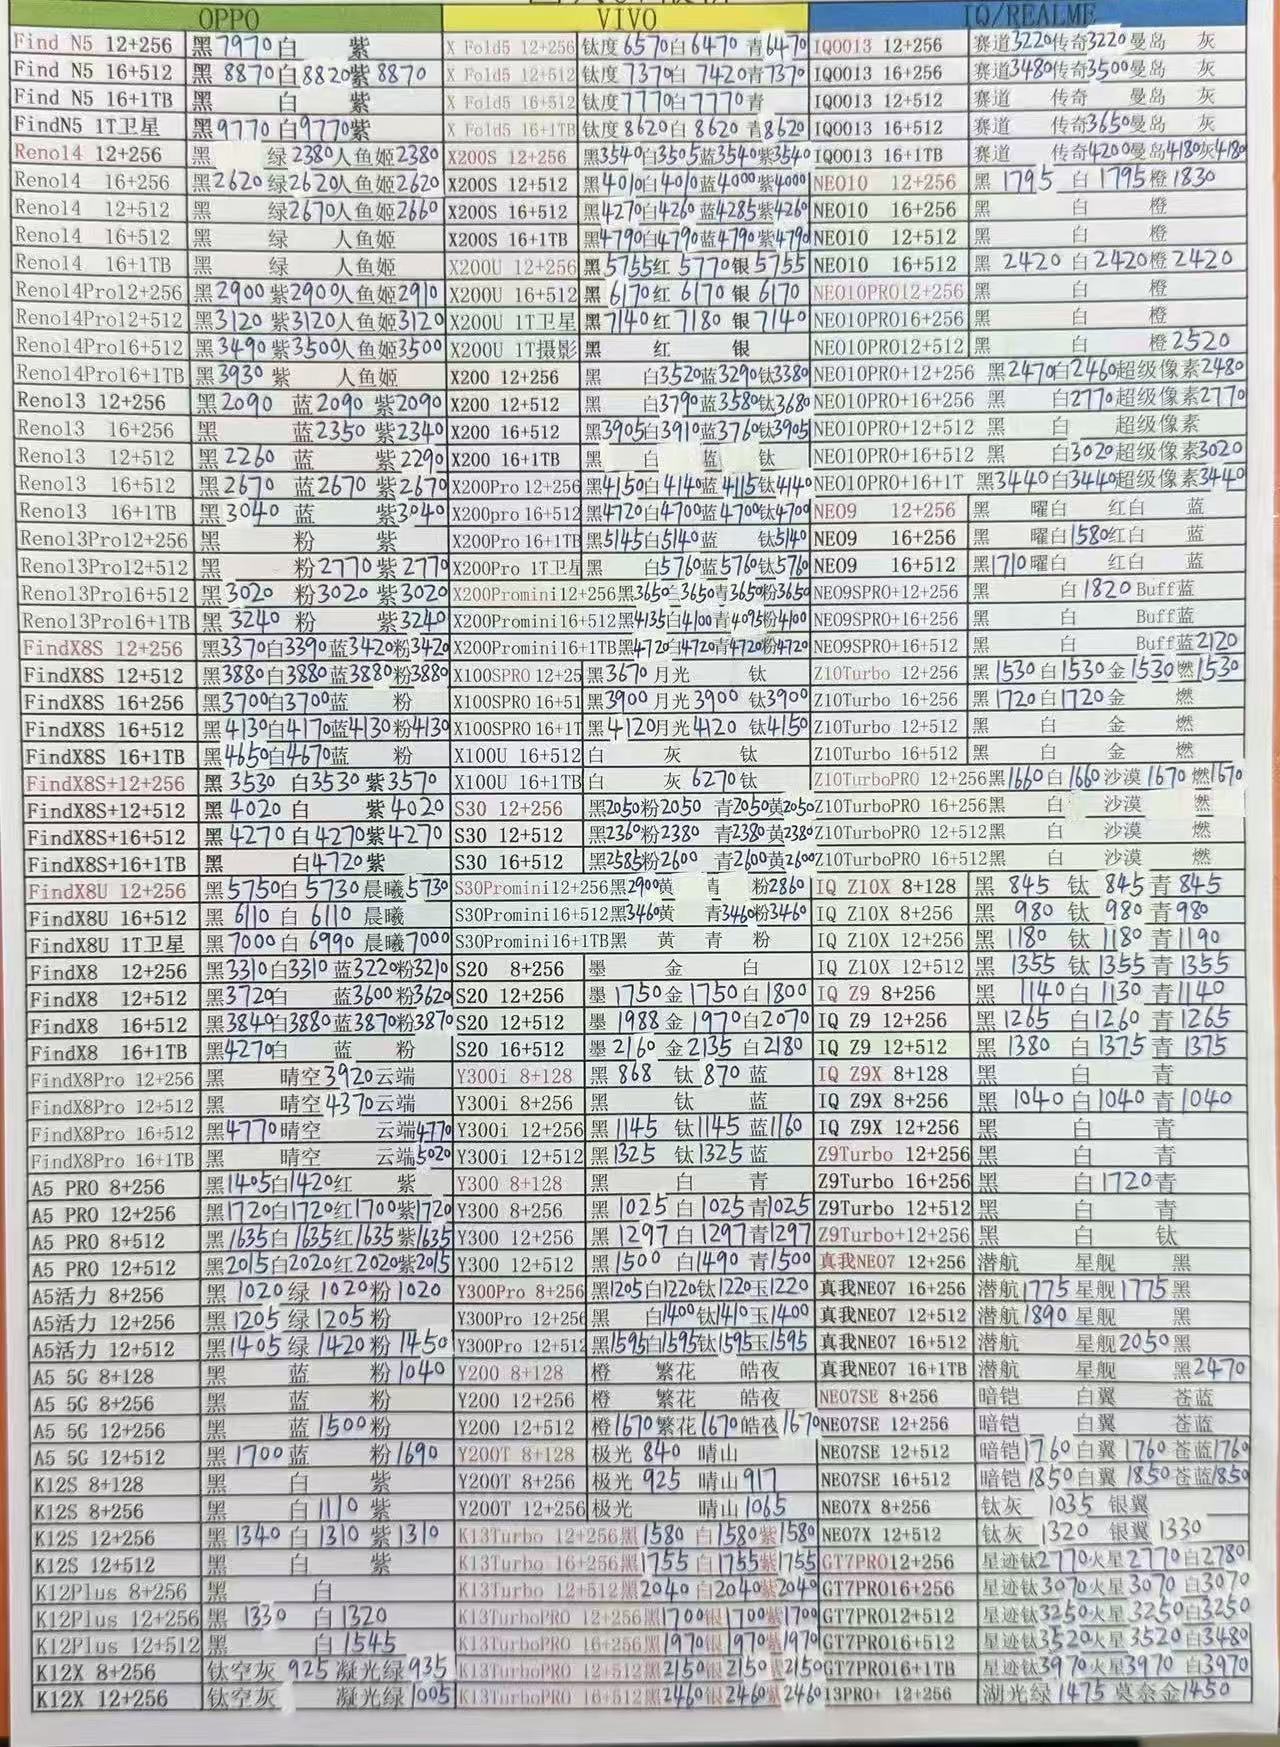 OPPO VIVO IQ/REALME
Find N5 12+256 黑7970白 紫 X Fold5 12+256 钛度6570白6470青6470 IQOO13 12+256 赛道3220传奇3220曼岛 灰
Find N5 16+512 黑8870白8820紫8870 X Fold5 12+512 钛度7370白7420青7370 IQOO13 16+256 赛道3480传奇3500曼岛 灰
Find N5 16+1TB 黑 白 紫 X Fold5 16+512 钛度7770白7770青 IQOO13 12+512 赛道 传奇 曼岛 灰
FindN5 1T卫星 黑9770白9770紫 X Fold5 16+1TB 钛度8620白8620青8620 IQOO13 16+512 赛道 传奇3650曼岛 灰
Reno14 12+256 黑 绿2380人鱼姬2380 X200S 12+256 黑3540白3505蓝3540紫3540 IQOO13 16+1TB 赛道 传奇4200曼岛4180灰4180
Reno14 16+256 黑2620绿2620人鱼姬2620 X200S 12+512 黑4010白4010蓝4000紫4000 NEO10 12+256 黑1795白1795橙1830
Reno14 12+512 黑 绿2670人鱼姬2660 X200S 16+512 黑4270白4260蓝4285紫4260 NEO10 16+256 黑 白 橙
Reno14 16+512 黑 绿 人鱼姬 X200S 16+1TB 黑4790白4790蓝4790紫4790 NEO10 12+512 黑 白 橙
Reno14 16+1TB 黑 绿 人鱼姬 X200U 12+256 黑5755红5770银5755 NEO10 16+512 黑2420白2420橙2420
Reno14Pro12+256 黑2900紫2900人鱼姬2910 X200U 16+512 黑6170红6170银6170 NEO10PRO12+256 黑 白 橙
Reno14Pro12+512 黑3120紫3120人鱼姬3120 X200U 1T卫星 黑7140红7180银7140 NEO10PRO16+256 黑 白 橙
Reno14Pro16+512 黑3490紫3500人鱼姬3500 X200U 1T摄影 黑 红 银 NEO10PRO12+512 黑 白 橙2520
Reno14Pro16+1TB 黑3930紫 人鱼姬 X200 12+256 黑 白3520蓝3290钛3380 NEO10PRO+12+256 黑2470白2460超级像素2480
Reno13 12+256 黑2090蓝2090紫2090 X200 12+512 黑 白3790蓝3580钛3680 NEO10PRO+16+256 黑 白2770超级像素2770
Reno13 16+256 黑 蓝2350紫2340 X200 16+512 黑3905白3910蓝3760钛3905 NEO10PRO+12+512 黑 白 超级像素
Reno13 12+512 黑2260蓝 紫2290 X200 16+1TB 黑 白 蓝 钛 NEO10PRO+16+512 黑 白3020超级像素3020
Reno13 16+512 黑2670蓝2670紫2670 X200Pro 12+256 黑4150白4140蓝4115钛4140 NEO10PRO+16+1T 黑3440白3440超级像素3440
Reno13 16+1TB 黑3040蓝 紫3040 X200pro 16+512 黑4720白4700蓝4700钛4700 NEO9 12+256 黑 曜白 红白 蓝
Reno13Pro12+256 黑 粉 紫 X200Pro 16+1TB 黑5145白5140蓝 钛5140 NEO9 16+256 黑 曜白1580红白 蓝
Reno13Pro12+512 黑 粉2770紫2770 X200Pro 1T卫星 黑 白5760蓝5760钛5760 NEO9 16+512 黑1710曜白 红白 蓝
Reno13Pro16+512 黑3020粉3020紫3020 X200Promini12+256 黑3650白3650青3650粉3650 NEO9SPRO+12+256 黑 白1820Buff蓝
Reno13Pro16+1TB 黑3240粉 紫3240 X200Promini16+512 黑4135白4100青4095粉4100 NEO9SPRO+16+256 黑 白 Buff蓝
FindX8S 12+256 黑3370白3390蓝3420粉3420 X200Promini16+1TB 黑4720白4720青4720粉4720 NEO9SPRO+16+512 黑 白 Buff蓝2120
FindX8S 12+512 黑3880白3880蓝3880粉3880 X100SPRO 12+25 黑3670月光 钛 Z10Turbo 12+256 黑1530白1530金1530燃1530
FindX8S 16+256 黑3700白3700蓝 粉 X100SPRO 16+51 黑3900月光3900钛3900 Z10Turbo 16+256 黑1720白1720金 燃
FindX8S 16+512 黑4130白4170蓝4130粉4130 X100SPRO 16+1T 黑4120月光4120钛4150 Z10Turbo 12+512 黑 白 金 燃
FindX8S 16+1TB 黑4650白4670蓝 粉 X100U 16+512 白 灰 钛 Z10Turbo 16+512 黑 白 金 燃
FindX8S+12+256 黑3530白3530紫3570 X100U 16+1TB 白 灰6270钛 Z10TurboPRO 12+256 黑1660白1660沙漠1670燃1670
FindX8S+12+512 黑4020白 紫4020 S30 12+256 黑2050粉2050青2050黄2050 Z10TurboPRO 16+256 黑 白 沙漠 燃
FindX8S+16+512 黑4270白4270紫4270 S30 12+512 黑2360粉2380青2380黄2380 Z10TurboPRO 12+512 黑 白 沙漠 燃
FindX8S+16+1TB 黑 白4720紫 S30 16+512 黑2585粉2600青2600黄2600 Z10TurboPRO 16+512 黑 白 沙漠 燃
FindX8U 12+256 黑5750白5730晨曦5730 S30Promini12+256 黑2900黄 青 粉2860 IQ Z10X 8+128 黑845钛845青845
FindX8U 16+512 黑6110白6110晨曦 S30Promini16+512 黑3460黄 青3460粉3460 IQ Z10X 8+256 黑980钛980青980
FindX8U 1T卫星 黑7000白6990晨曦7000 S30Promini16+1TB 黑 黄 青 粉 IQ Z10X 12+256 黑1180钛1180青1190
FindX8 12+256 黑3310白3310蓝3220粉3210 S20 8+256 墨 金 白 IQ Z10X 12+512 黑1355钛1355青1355
FindX8 12+512 黑3720白 蓝3600粉3620 S20 12+256 墨1750金1750白1800 IQ Z9 8+256 黑1140白1130青1140
FindX8 16+512 黑3840白3880蓝3870粉3870 S20 12+512 墨1988金1970白2070 IQ Z9 12+256 黑1265白1260青1265
FindX8 16+1TB 黑4270白 蓝 粉 S20 16+512 墨2160金2135白2180 IQ Z9 12+512 黑1380白1375青1375
FindX8Pro 12+256 黑 晴空3920云端 Y300i 8+128 黑868钛870蓝 IQ Z9X 8+128 黑 白 青
FindX8Pro 12+512 黑 晴空4370云端 Y300i 8+256 黑 钛 蓝 IQ Z9X 8+256 黑1040白1040青1040
FindX8Pro 16+512 黑4770晴空 云端4770 Y300i 12+256 黑1145钛1145蓝1160 IQ Z9X 12+256 黑 白 青
FindX8Pro 16+1TB 黑 晴空 云端5020 Y300i 12+512 黑1325钛1325蓝 Z9Turbo 12+256 黑 白 青
A5 PRO 8+256 黑1405白1420红 紫 Y300 8+128 黑 白 青 Z9Turbo 16+256 黑 白1720青
A5 PRO 12+256 黑1720白1720红1700紫1720 Y300 8+256 黑1025白1025青1025 Z9Turbo 12+512 黑 白 青
A5 PRO 8+512 黑1635白1635红1635紫1635 Y300 12+256 黑1297白1297青1297 Z9Turbo+12+256 黑 白 钛
A5 PRO 12+512 黑2015白2020红2020紫2015 Y300 12+512 黑1500白1490青1500 真我NEO7 12+256 潜航 星舰 黑
A5活力 8+256 黑1020绿1020粉1020 Y300Pro 8+256 黑1205白1220钛1220玉1220 真我NEO7 16+256 潜航1775星舰1775黑
A5活力 12+256 黑1205绿1205粉 Y300Pro 12+256 黑 白1400钛1410玉1400 真我NEO7 12+512 潜航1890星舰 黑
A5活力 12+512 黑1405绿1420粉1450 Y300Pro 12+512 黑1595白1595钛1595玉1595 真我NEO7 16+512 潜航 星舰2050黑
A5 5G 8+128 黑 蓝 粉1040 Y200 8+128 橙 繁花 皓夜 真我NEO7 16+1TB 潜航 星舰 黑2470
A5 5G 8+256 黑 蓝 粉 Y200 12+256 橙 繁花 皓夜 NEO7SE 8+256 暗铠 白翼 苍蓝
A5 5G 12+256 黑 蓝1500粉 Y200 12+512 橙1670繁花1670皓夜1670 NEO7SE 12+256 暗铠 白翼 苍蓝
A5 5G 12+512 黑1700蓝 粉1690 Y200T 8+128 极光840晴山 NEO7SE 12+512 暗铠1760白翼1760苍蓝1760
K12S 8+128 黑 白 紫 Y200T 8+256 极光925晴山917 NEO7SE 16+512 暗铠1850白翼1850苍蓝1850
K12S 8+256 黑 白1110紫 Y200T 12+256 极光 晴山1065 NEO7X 8+256 钛灰1035银翼
K12S 12+256 黑1340白1310紫1310 K13Turbo 12+256 黑1580白1580紫1580 NEO7X 12+512 钛灰1320银翼1330
K12S 12+512 黑 白 紫 K13Turbo 16+256 黑1755白1755紫1755 GT7PRO12+256 星迹钛2770火星2770白2780
K12Plus 8+256 黑 白 K13Turbo 12+512 黑2040白2040紫2040 GT7PRO16+256 星迹钛3070火星3070白3070
K12Plus 12+256 黑1330白1320 K13TurboPRO 12+256 黑1700银1700紫1700 GT7PRO12+512 星迹钛3250火星3250白3250
K12Plus 12+512 黑 白1545 K13TurboPRO 16+256 黑1970银1970紫1970 GT7PRO16+512 星迹钛3520火星3520白3480
K12X 8+256 钛空灰925凝光绿935 K13TurboPRO 12+512 黑2150银2150紫2150 GT7PRO16+1TB 星迹钛3970火星3970白3970
K12X 12+256 钛空灰 凝光绿1005 K13TurboPRO 16+512 黑2460银2460紫2460 13PRO+ 12+256 湖光绿1475莫奈金1450